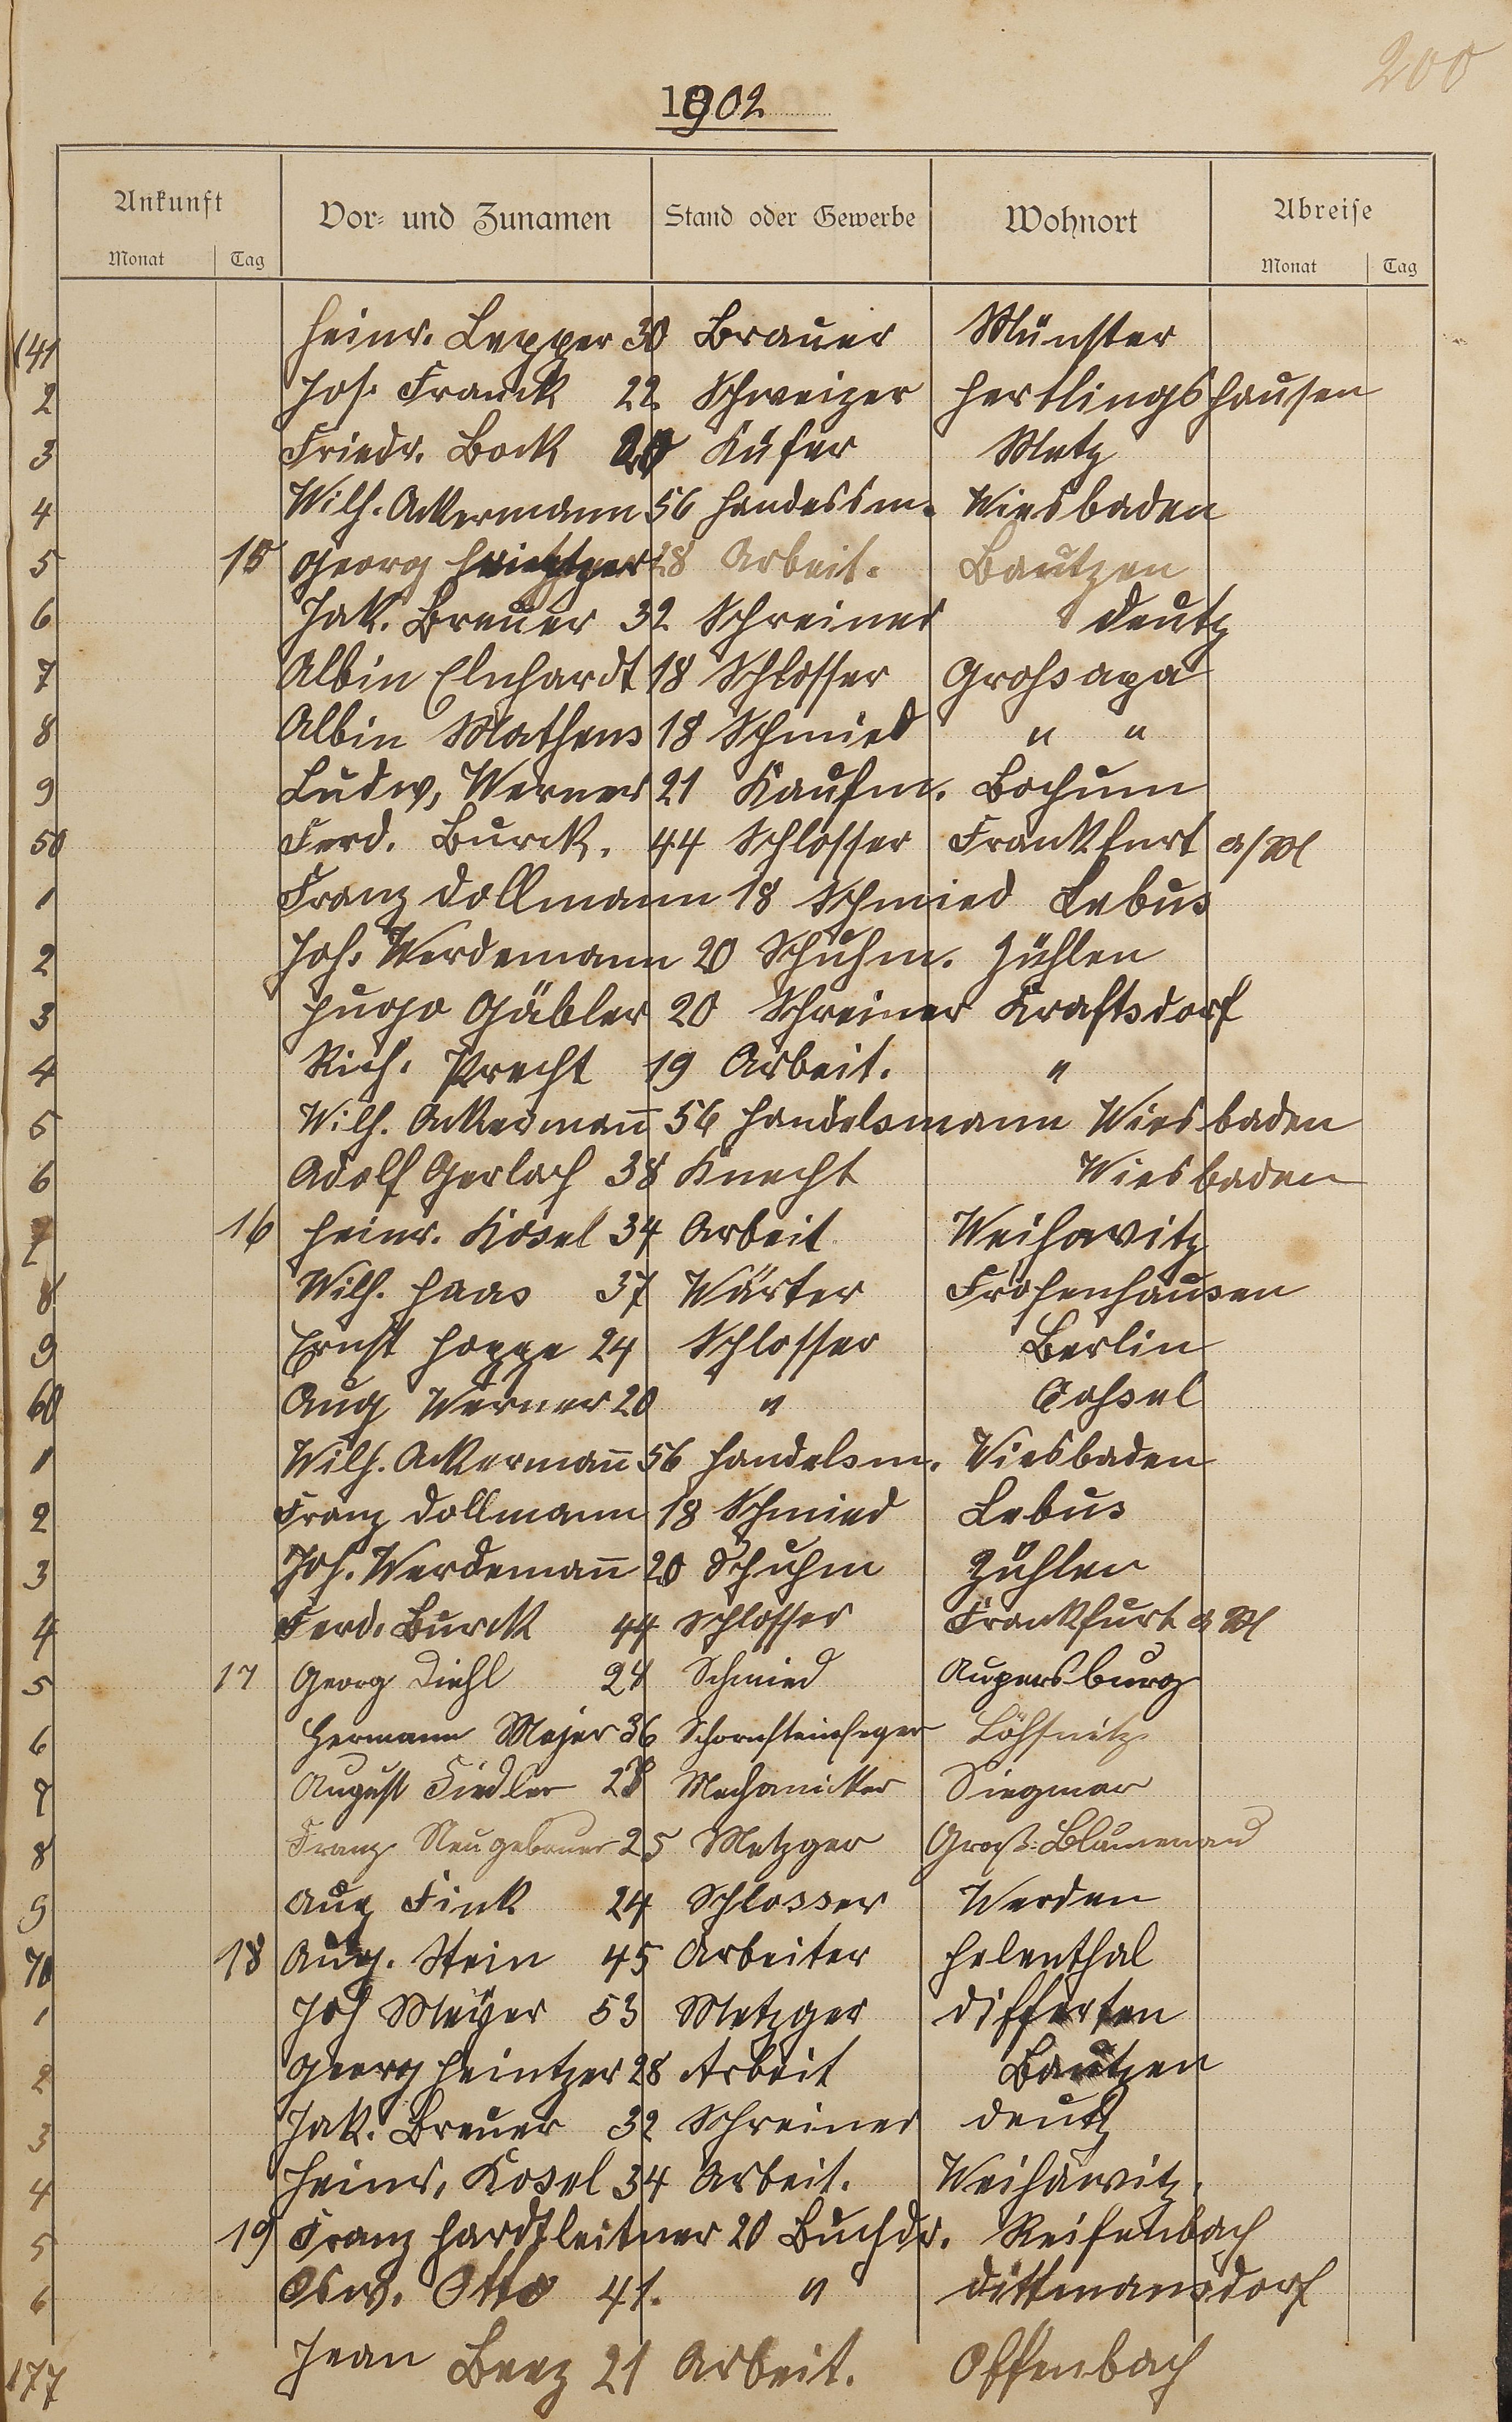 200
1902
Ankunft Vor- und Zunamen Stand oder Gewerbe Wohnort Abreise
Monat Tag Monat Tag
141 Heinr. Lepper 30 Brauer Münster
2 Jos. Franck 22 Schweizer Hertlingshausen
3 Friedr. Bock 20 Küfer Metz
4 Wilh. Ackermann 56 Handessm. Wiesbaden
5 15 Georg 28 Arbeit. Bautzen
6 Jak. Breuer 32 Schreiner Deutz
7 Albin Elnhardt 18 Schlosser Grossapa
8 Albin Mathens 18 Schmied " "
9 Ludw, Werner 21 Kaufm. Bochum
50 Ferd. Burck. 44 Schlosser Frankfurt a/M
1 Franz Dollmann 18 Schmied Lebus
2 Joh. Werdemann 20 Schuhm. Zühlen
3 Hugo Gäbler 20 Schreiner Kraftsdorf
4 Rich. Precht 19 Arbeit. "
5 Wilh. Ackermañ 56 Handelsmann Wiesbaden
6 Adolf Gerlach 38 Knecht Wiesbaden
7 16 Heinr. Kosel 34 Arbeit Weihawitz
8 Wilh. Haas 37 Wärter Frohenhausen
9 Ernst Hoppe 24 Schlosser Berlin
60 Aug Werner 20 " Cassel
1 Wilh. Ackermañ 56 Handelsm. Wiesbaden
2 Franz Dollmann 18 Schmied Lebus
3 Joh. Werdemañ 20 Schuhm Zühlen
4 Ferd. Burck 44 Schlosser Frankfurt a M
5 17 Georg Diehl 24 Schmied Aupersburg
6 Hermann Mejer 36 Schornsteinfeger Lößnitz
7 August Fiedler 28 Mechanicker Siegmar
8 Franz Neugebauer 25 Metzger Groß-Blumenau
9 Aug Fink 24 Schlosser Werden
70 18 Aug. Stein 45 Arbeiter Helenthal
1 Joh Meÿer 53 Metzger Differten
2 Georg Heintzer 28 Arbeit Bautzen
3 Jak. Breuer 32 Schreiner Deutz
4 Heinr. Kosel 34 Arbeit. Weihawitz.
5 19 Franz Hardtleitner 20 Buchdr. Reifenbach
6 Osw. Otto 41. " Dittmansdorf
177 Jean Benz 21 Arbeit. Offenbach